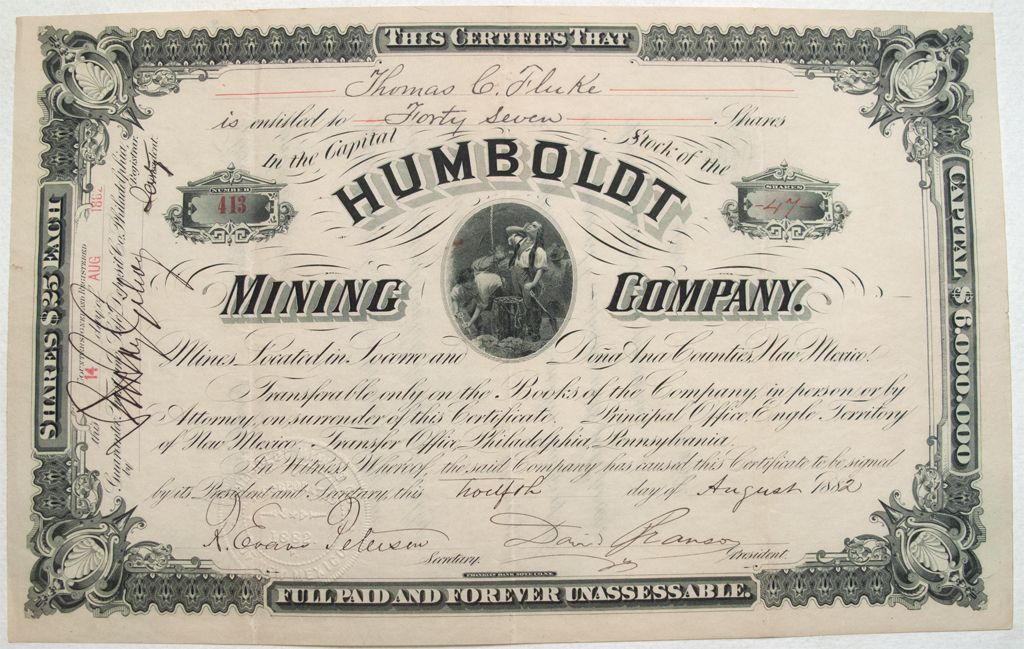 THIS CERTIFIES THAT
Thomas C. Fluke
is entitled to Forty Seven Shares
In the Capital Stock of the
NUMBER
413
SHARES
47
HUMBOLDT
MINING COMPANY.
Mines Located in Socorro and Doña Ana Counties, New Mexico.
Transferable only on the Books of the Company, in person or by
Attorney, on surrender of this Certificate. Principal Office, Engle Territory
of New Mexico, Transfer Office, Philadelphia, Pennsylvania.
In Witness Whereof, the said Company has caused this Certificate to be signed
by its President and Secretary, this twelfth day of August 1882
R. Evans Peterson Secretary.
President.
FRANKLIN BANK NOTE CO. N.Y.
FULL PAID AND FOREVER UNASSESSABLE.
SHARES $25 EACH
CAPITAL $6,000,000
COUNTERSIGNED AND REGISTERED
this 14 day of AUG 1882
Philadelphia,
Registrar.